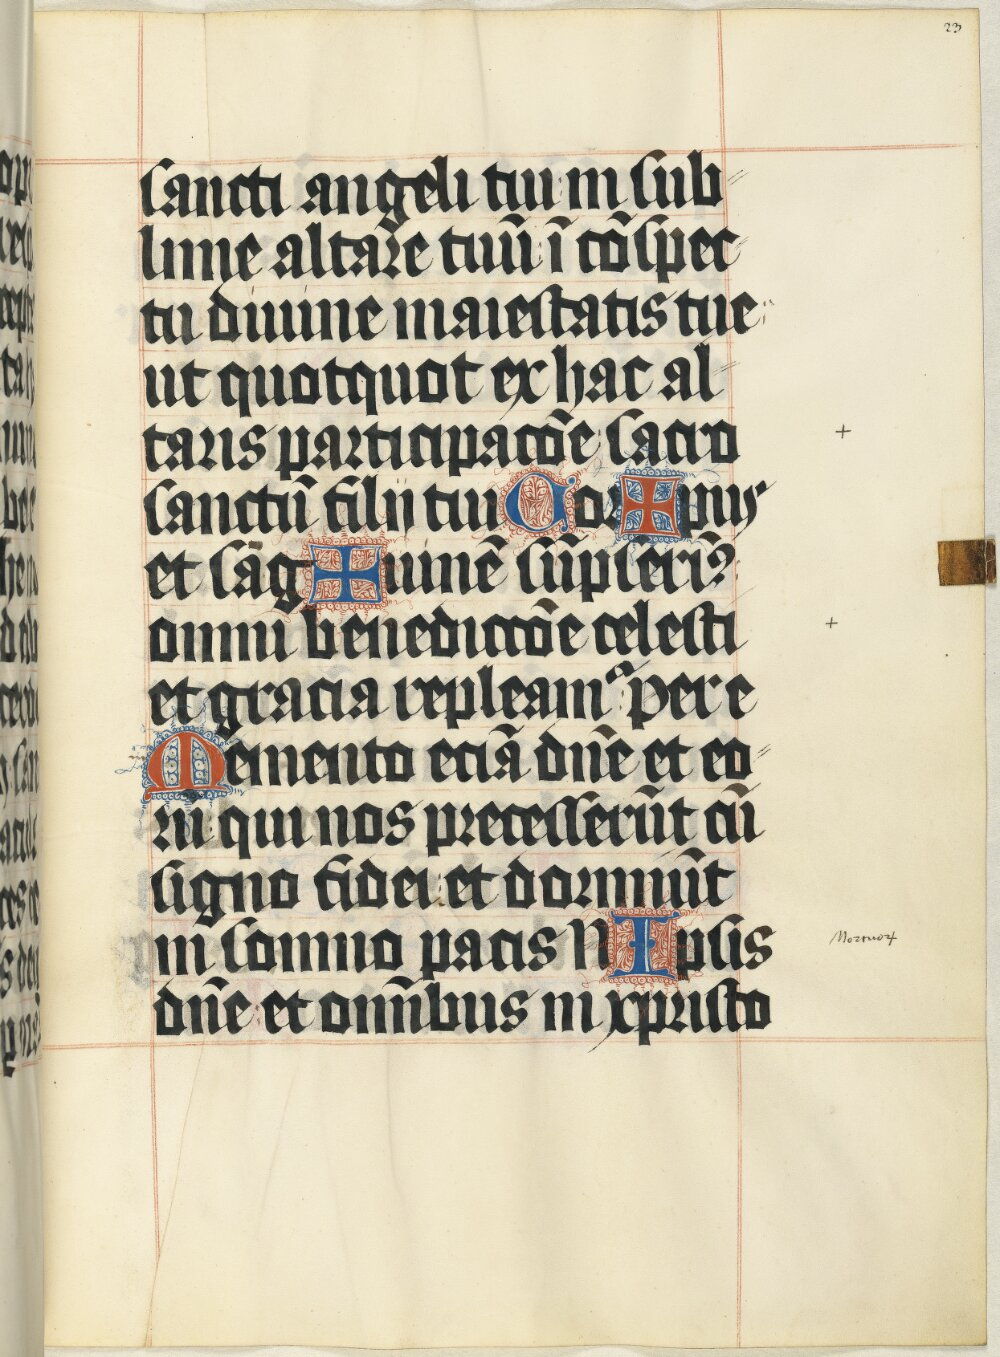 23
sancti angeli tui in sub⸗
lime altare tuū ī cōspec
tu diuine maiestatis tue
ut quotquot ex hac al⸗
taris participacōe sacro
sanctū filij tui Cor✠pus
et sāg✠uinē sūpserim᷒
omni benediccōe celesti
et gracia repleamᷣ Per e
Memento eciā dn̄e et eo⸗
rū qui nos precesserūt cū
signo fidei et dormiūt
in somno pacis N Ipsis
dn̄e et omībus in xpristo
+
+
Mortuor